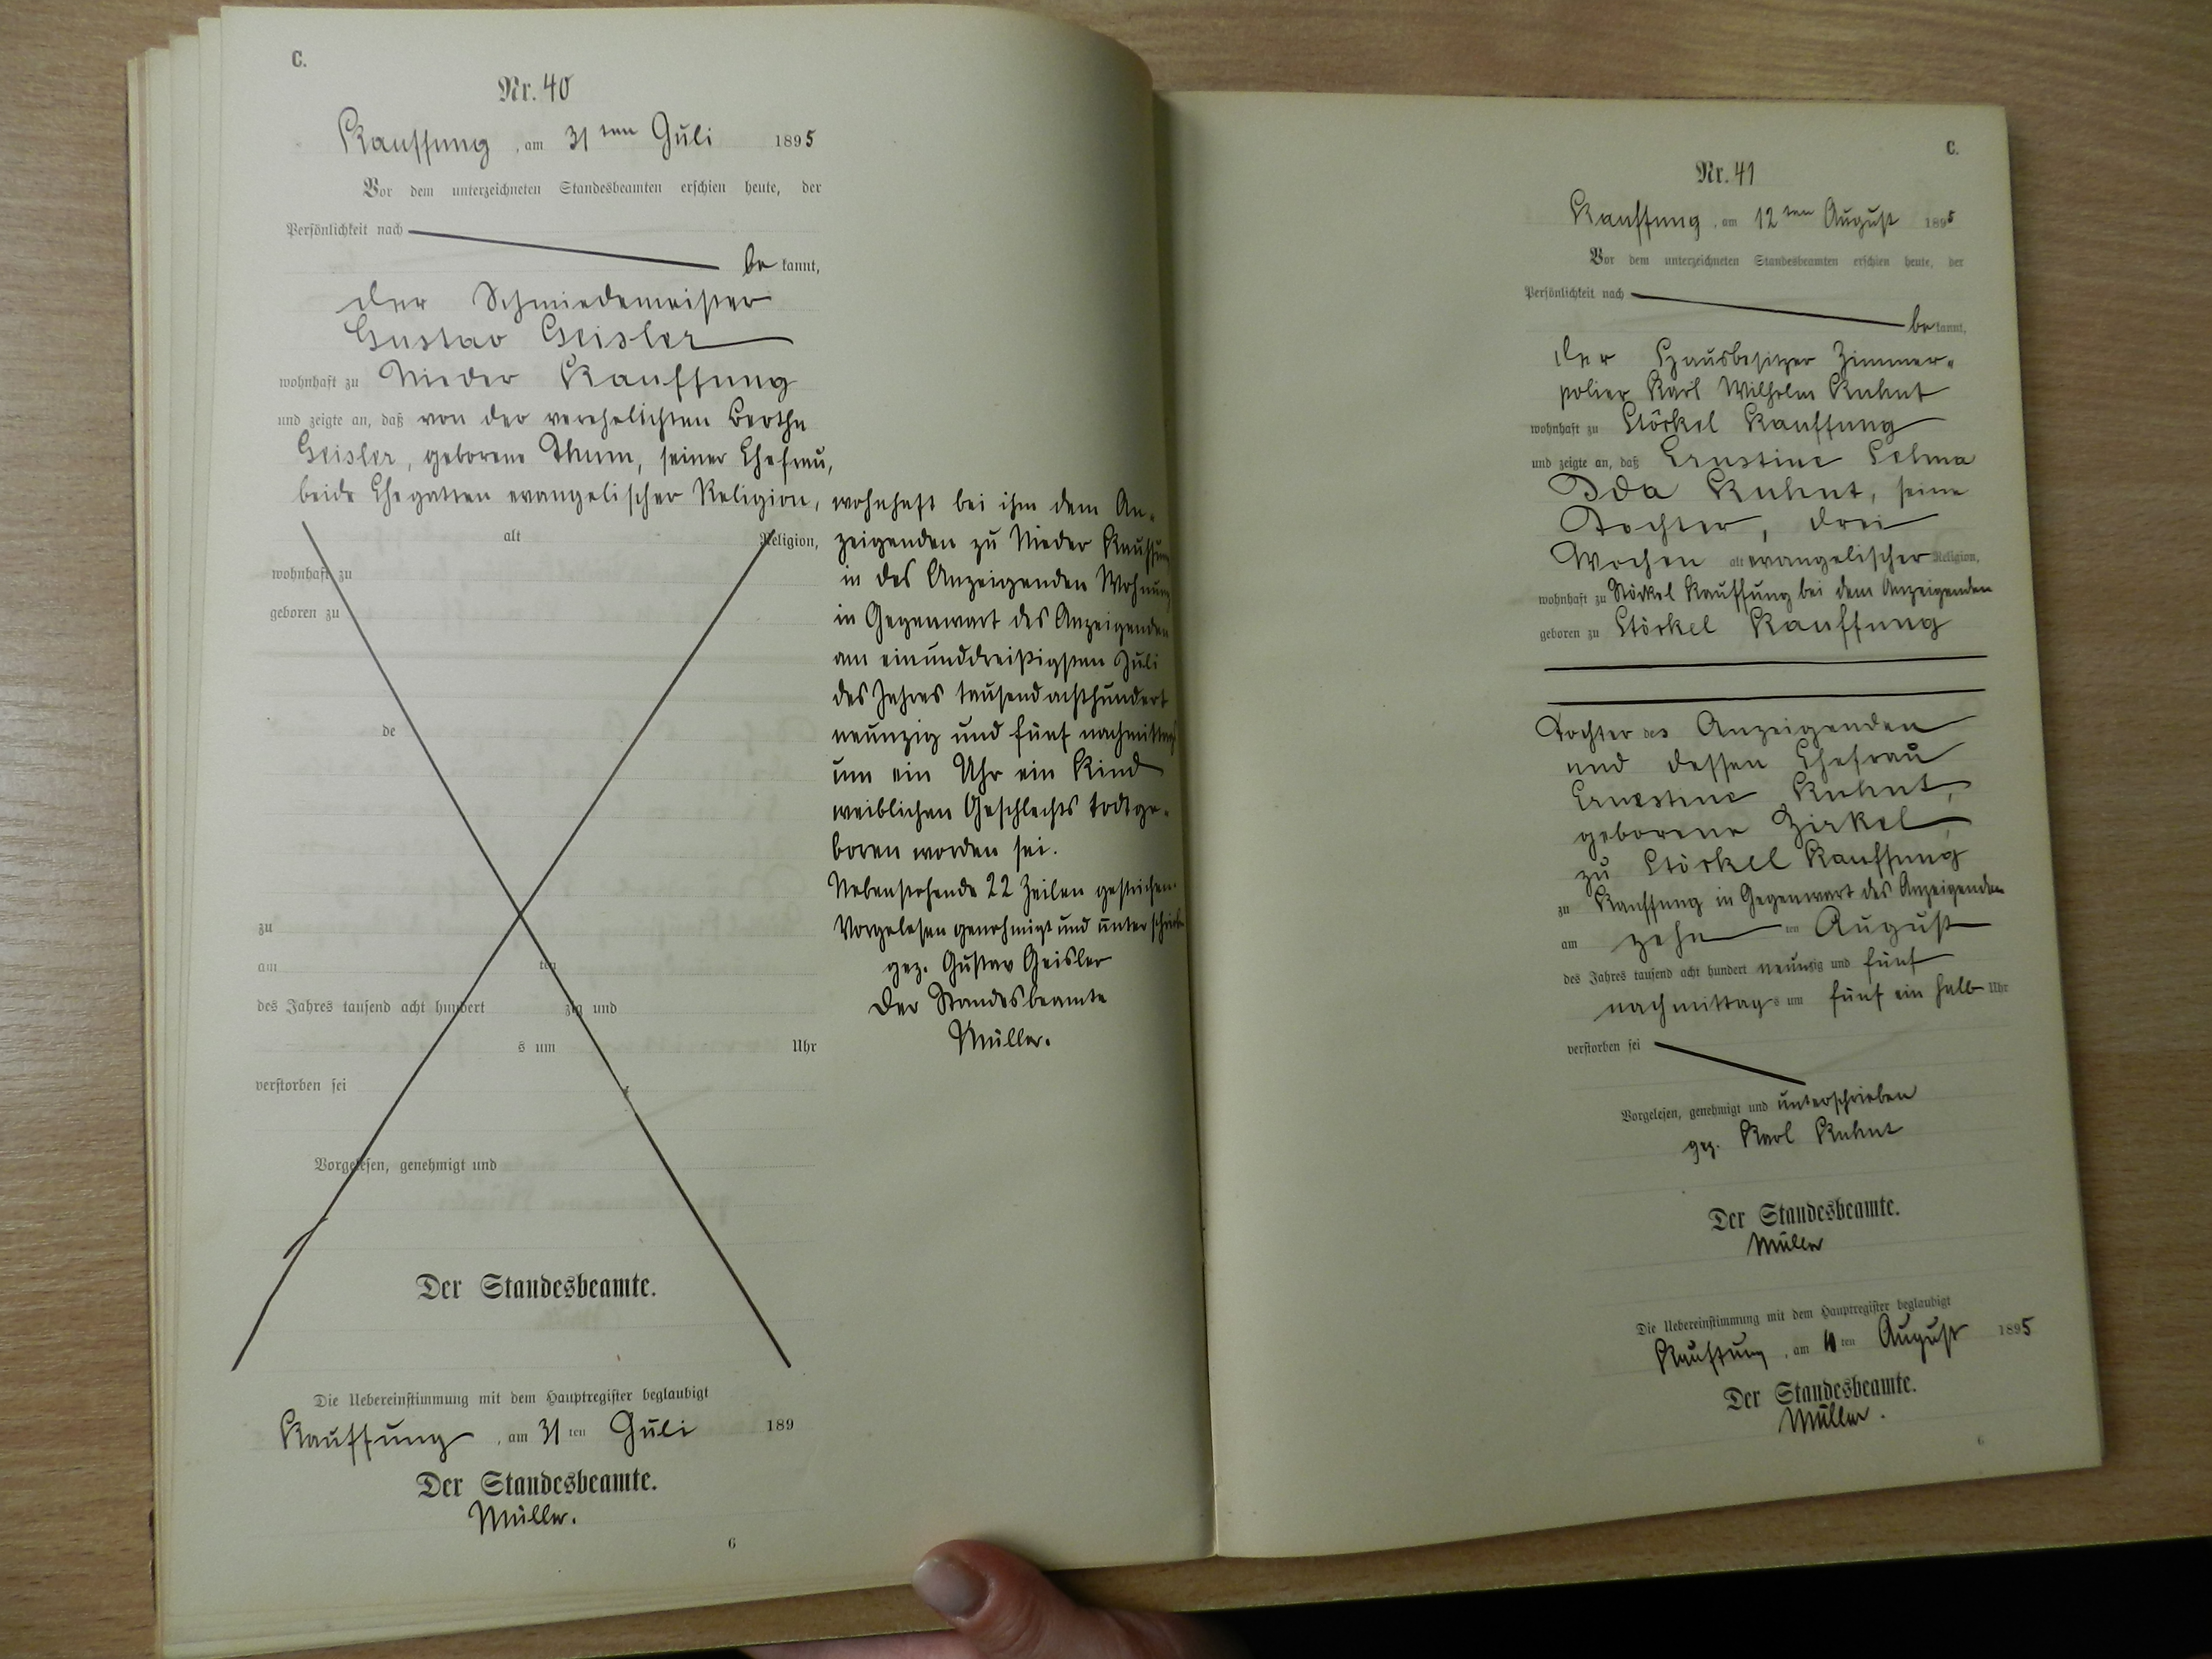 C.
Nr. 40
Kauffung, am 31 ten Juli 1895
Vor dem unterzeichneten Standesbeamten erschien heute, der
Persönlichkeit nach
be kannt,
der Schmiedemeister
Gustav Geisler
wohnhaft zu Nieder Kauffung
und zeigte an, daß von der verehelichten Berthe
Geisler, geborene Thum, seiner Ehefrau,
beide Ehegatten evangelischer Religion,
alt Religion,
wohnhaft zu
geboren zu
de
zu
am ten
des Jahres tausend acht hundert zig und
s um Uhr
verstorben sei
Vorgelesen, genehmigt und
Der Standesbeamte.
Die Uebereinstimmung mit dem Hauptregister beglaubigt
Kauffung, am 31 ten Juli 189
Der Standesbeamte.
Müller.
6
wohnhaft bei ihm dem An-
zeigenden zu Nieder Kauffung
in des Anzeigenden Wohnung
in Gegenwart des Anzeigenden
am einunddreißigsten Juli
des Jahres tausend achthundert
neunzig und fünf nachmittags
um ein Uhr ein Kind
weiblichen Geschlechts todtge-
boren worden sei.
Nebenstehende 22 Zeilen gestrichen.
Vorgelesen genehmigt und unterschrieben
gez. Gustav Geisler
Der Standesbeamte
Müller.
C.
Nr. 41
Kauffung, am 12 ten August 1895
Vor dem unterzeichneten Standesbeamten erschien heute, der
Persönlichkeit nach
be kannt,
der Hausbesitzer Zimmer-
polier Karl Wilhelm Kuhnt
wohnhaft zu Stöckel Kauffung
und zeigte an, daß Ernstine Selma
Ida Kuhnt, seine
Tochter, drei
Wochen alt evangelischer Religion,
wohnhaft zu Stöckel Kauffung bei dem Anzeigenden
geboren zu Stöckel Kauffung
Tochter des Anzeigenden
und dessen Ehefrau
Ernestine Kuhnt,
geborene Zirkel,
zu Stöckel Kauffung
zu Kauffung in Gegenwart des Anzeigenden
am zehn ten August
des Jahres tausend acht hundert neunzig und fünf
nachmittags um fünf ein halb Uhr
verstorben sei
Vorgelesen, genehmigt und unterschrieben
gez. Karl Kuhnt
Der Standesbeamte.
Müller
Die Uebereinstimmung mit dem Hauptregister beglaubigt
Kauffung, am ten August 1895
Der Standesbeamte.
Müller.
6